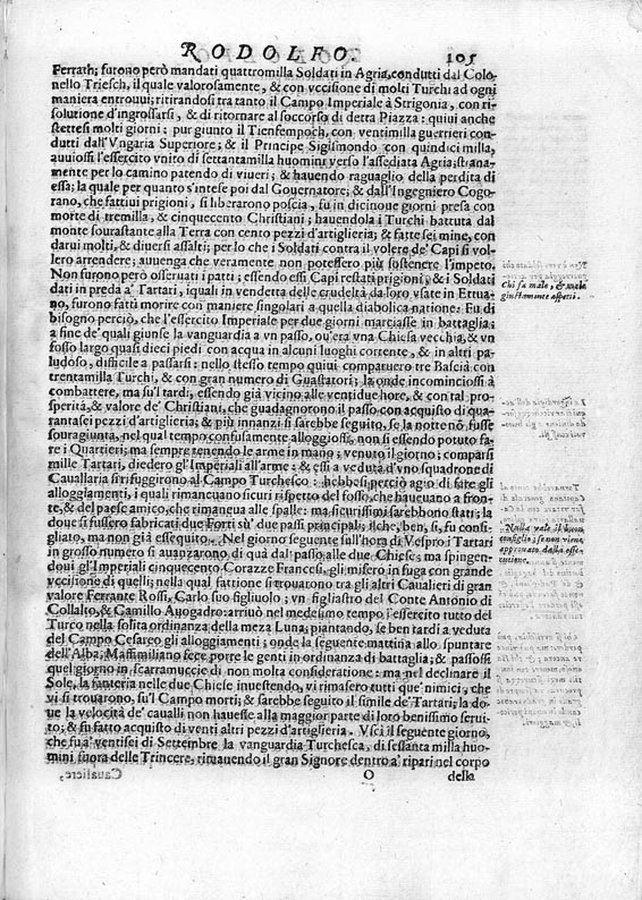 RODOLFO. 105
Ferrath; furono però mandati quattromilla Soldati in Agria, condutti dal Colo-
nello Triesch, il quale valorosamente, & con vccisione di molti Turchi ad ogni
maniera entrouui; ritirandosi tra tanto il Campo Imperiale à Strigonia, con ri-
solutione d'ingrossarsi, & di ritornare al soccorso di detta Piazza: quiui anche
stettesi molti giorni: pur giunto il Tienfempoch, con ventimilla guerrieri con-
dutti dall'Vngaria Superiore; & il Principe Sigismondo con quindici milla,
auuiossi l'essercito vnito di settantamilla huomini verso l'assediata Agria; strana-
mente per lo camino patendo di viueri; & hauendo raguaglio della perdita di
essa; la quale per quanto s'intese poi dal Gouernatore; & dall'Ingegniero Cogo-
rano, che fattiui prigioni, si liberarono poscia, fu in dicinoue giorni presa con
morte di tremilla, & cinquecento Christiani; hauendola i Turchi battuta dal
monte sourastante alla Terra con cento pezzi d'artiglieria; & fatte sei mine, con
darui molti, & diuersi assalti; per lo che i Soldati contra il volere de' Capi si vol-
lero arrendere; auuenga che veramente non potessero più sostenere l'impeto.
Non furono però osseruati i patti; essendo essi Capi restati prigioni; & i Soldati
dati in preda a' Tartari, iquali in vendetta delle crudeltà da loro vsate in Ettua-
no, furono fatti morire con maniere singolari a quella diabolica natione. Fu di
bisogno perciò, che l'essercito Imperiale per due giorni marciasse in battaglia;
a fine de' quali giunse la vanguardia a vn passo, ou'era vna Chiesa vecchia, & vn
fosso largo quasi dieci piedi con acqua in alcuni luoghi corrente, & in altri pa-
ludoso, difficile a passarsi: nello stesso tempo quiui comparuero tre Bascià con
trentamilla Turchi, & con gran numero di Guastatori; la onde incominciossi à
combattere, ma su'l tardi, essendo già vicino alle ventidue hore, & con tal pro-
sperità, & valore de' Christiani, che guadagnorono il passo con acquisto di qua-
rantasei pezzi d'artiglieria; & più innanzi si sarebbe seguito, se la notte nō fusse
souragiunta, nel qual tempo confusamente alloggiossi, non si essendo potuto fa-
re i Quartieri; ma sempre tenendo le arme in mano; venuto il giorno; comparsi
mille Tartari, diedero gl'Imperiali all'arme: & essi a veduta d'vno squadrone di
Cauallaria si rifuggirono al Campo Turchesco: hebbesi perciò agio di fare gli
alloggiamenti, i quali rimaneuano sicuri rispetto del fosso, che haueuano a fron-
te, & del paese amico, che rimaneua alle spalle: ma sicurissimi sarebbono stati; la
doue si fussero fabricati due Forti sù' due passi principali; ilche, ben, sì, fu consi-
gliato, ma non già essequito. Nel giorno seguente sull'hora di Vespro; i Tartari
in grosso numero si auanzarono di quà dal passo alle due Chiese; ma spingen-
doui gl'Imperiali cinquecento Corazze Francesi, gli misero in fuga con grande
vccisione di quelli; nella qual fattione si trouatono tra gli altri Caualieri di gran
valore Ferrante Rossi, Carlo suo figliuolo; vn figliastro del Conte Antonio di
Collalto, & Camillo Auogadro: arriuò nel medesimo tempo l'essercito tutto del
Turco nella solita ordinanza della meza Luna; piantando, se ben tardi a veduta
del Campo Cesareo gli alloggiamenti; onde la seguente mattina allo spuntare
dell'Alba; Massimiliano fece porre le genti in ordinanza di battaglia; & passossi
quel giorno in scaramuccie di non molta consideratione: ma nel declinare il
Sole, la fanteria nelle due Chiese inuestendo, vi rimasero tutti que' nimici, che
vi si trouarono, su'l Campo morti; & sarebbe seguito il simile de' Tartari; la do-
ue la velocità de' caualli non hauesse alla maggior parte di loro benissimo serui-
to; & fu fatto acquisto di venti altri pezzi d'artiglieria. Vscì il seguente giorno,
che fu a' ventisei di Settembre la vanguardia Turchesca, di sessanta milla huo-
mini fuora delle Trincere, rimanendo il gran Signore dentro a' ripari nel corpo
O della
Chi fa male, & male
giustamente aspetti.
Nulla vale il buon
consiglio; se non viene
appronato dalla esse-
cutione.